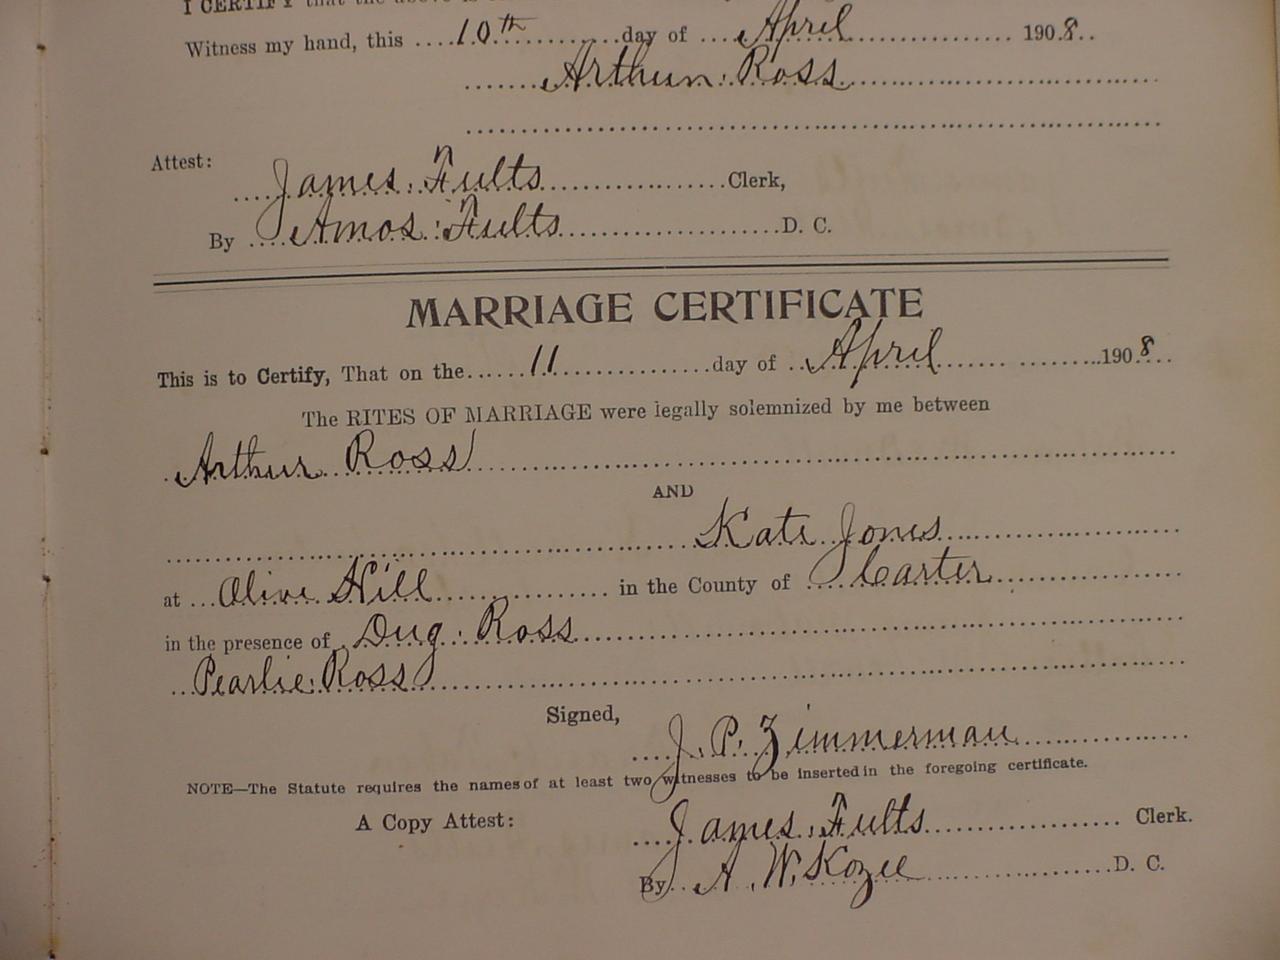 I CERTIFY that the above is
Witness my hand, this ....10th............day of ....April................ 1908..
Arthur Ross
Attest:
James Fults Clerk,
By Amos Fults D. C.
MARRIAGE CERTIFICATE
This is to Certify, That on the......11................day of ..April....... ..........1908...
The RITES OF MARRIAGE were legally solemnized by me between
Arthur Ross
AND
Kate Jones
at ...Olive Hill.................. in the County of ....Carter
in the presence of Dug Ross
Pearlie Ross
Signed,
J. P. Zimmerman
NOTE—The Statute requires the names of at least two witnesses to be inserted in the foregoing certificate.
A Copy Attest: James Fults Clerk.
By A. W. Kozee D. C.